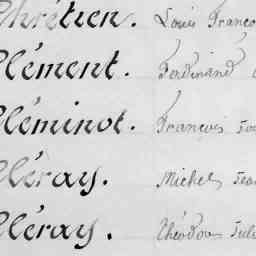 Chrétien. Louis François
Clément. Ferdinand
Cléminot. François
Cléray. Michel Jean
Cléray. Théodore Jules